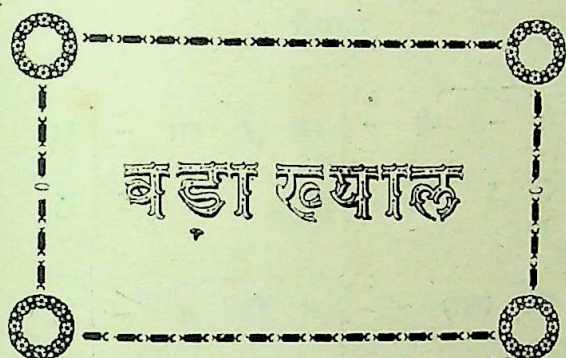 बड़ा ख्याल